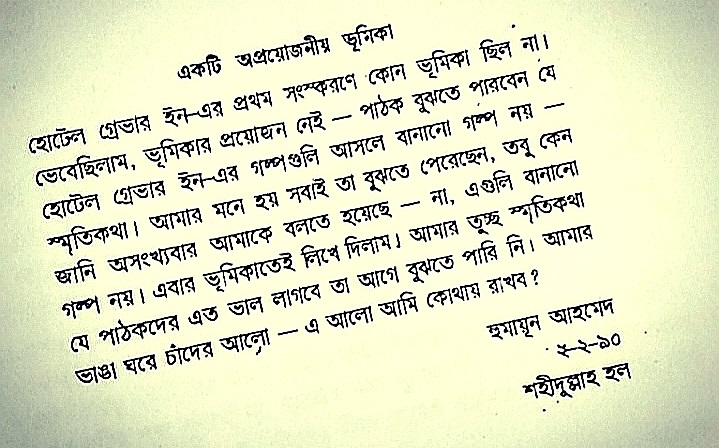 একটি অপ্রয়োজনীয় ভূমিকা
হোটেল গ্রেভার ইন-এর প্রথম সংস্করণে কোন ভূমিকা ছিল না।
ভেবেছিলাম, ভূমিকার প্রয়োজন নেই — পাঠক বুঝতে পারবেন যে
হোটেল গ্রেভার ইন-এর গল্পগুলি আসলে বানানো গল্প নয় —
স্মৃতিকথা। আমার মনে হয় সবাই তা বুঝতে পেরেছেন, তবু কেন
জানি অসংখ্যবার আমাকে বলতে হয়েছে — না, এগুলি বানানো
গল্প নয়। এবার ভূমিকাতেই লিখে দিলাম। আমার তুচ্ছ স্মৃতিকথা
যে পাঠকদের এত ভাল লাগবে তা আগে বুঝতে পারি নি। আমার
ভাঙা ঘরে চাঁদের আলো — এ আলো আমি কোথায় রাখব?
হুমায়ূন আহমেদ
৫-২-৯০
শহীদুল্লাহ হল